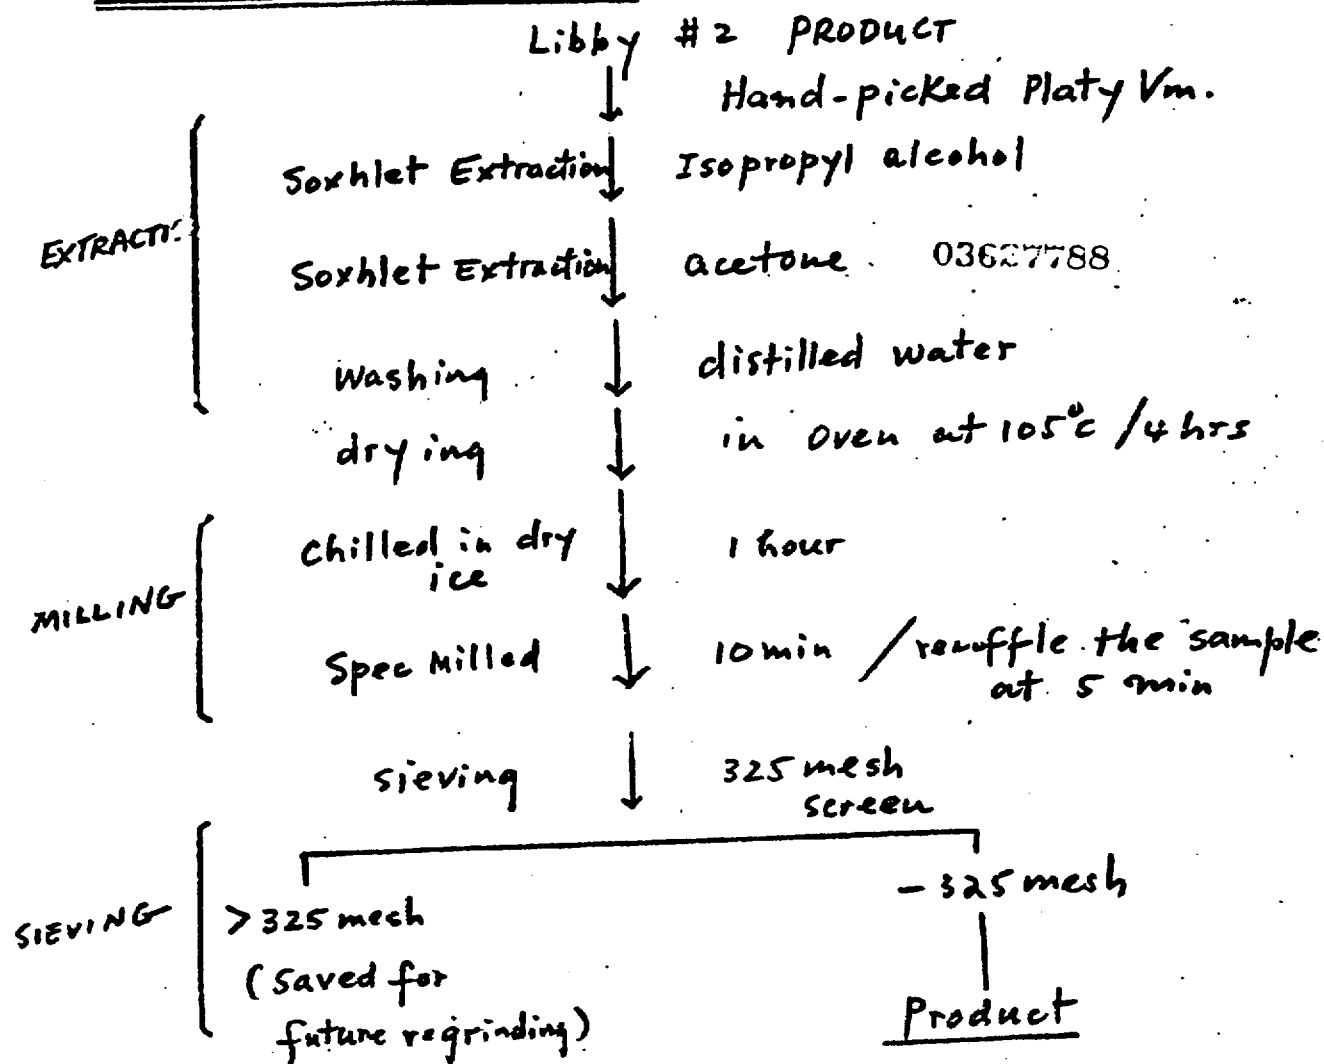 Libby #2 PRODUCT
Hand-picked Platy Vm.
Soxhlet Extraction Isopropyl alcohol
EXTRACTI
Soxhlet Extraction acetone 03627788
Washing distilled water
drying in oven at 105°C /4 hrs
chilled in dry 1 hour
ice
MILLING
Spec Milled 10 min / the sample
at 5 min
sieving 325 mesh
screen
- 325 mesh
SIEVING > 325 mesh
(saved for
future regrinding)
Product